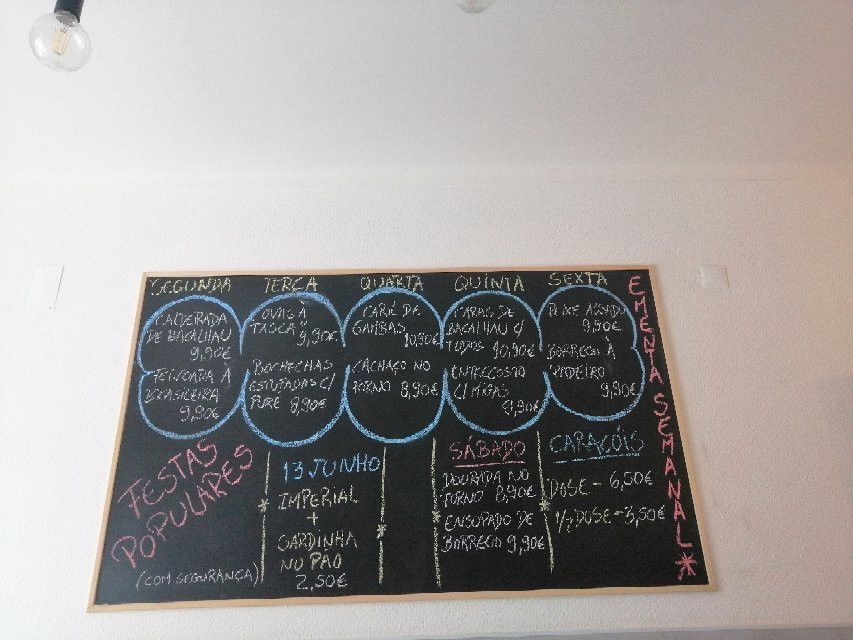 SEGUNDA
CALDEIRADA
DE BACALHAU
9,90€
FEIJOADA À
BRASILEIRA
9,90€
TERÇA
OVAS À
TASCA 9,90€
BOCHECHAS
ESTUFADAS C/
PURE 8,90€
QUARTA
CARIL DE
GAMBAS
10,90€
CACHAÇO NO
FORNO 8,90€
QUINTA
CARAS DE
BACALHAU C/
TODOS 10,90€
ENTRECOSTO
C/ MIGAS
9,90€
SEXTA
PEIXE ASSADO
9,90€
BORREGO À
PADEIRO
9,90€
EMENTA SEMANAL*
FESTAS
POPULARES
(COM SEGURANÇA)
13 JUNHO
IMPERIAL
+
SARDINHA
NO PÃO
2,50€
SÁBADO
DOURADA NO
FORNO 8,90€
ENSOPADO DE
BORREGO 9,90€
CARACÓIS
DOSE - 6,50€
1/2 DOSE - 3,50€